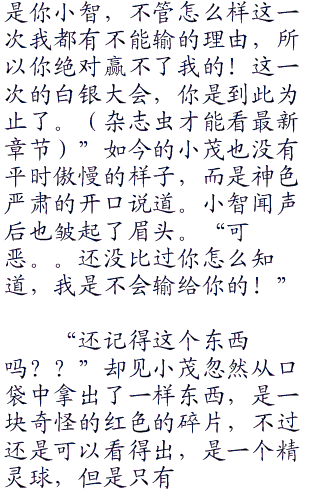 是你小智，不管怎么样这一
次我都有不能输的理由，所
以你绝对赢不了我的！这一
次的白银大会，你是到此为
止了。（杂志虫才能看最新
章节）”如今的小茂也没有
平时傲慢的样子，而是神色
严肃的开口说道。小智闻声
后也皱起了眉头。“可
恶。。还没比过你怎么知
道，我是不会输给你的！”
“还记得这个东西
吗？？”却见小茂忽然从口
袋中拿出了一样东西，是一
块奇怪的红色的碎片，不过
还是可以看得出，是一个精
灵球，但是只有